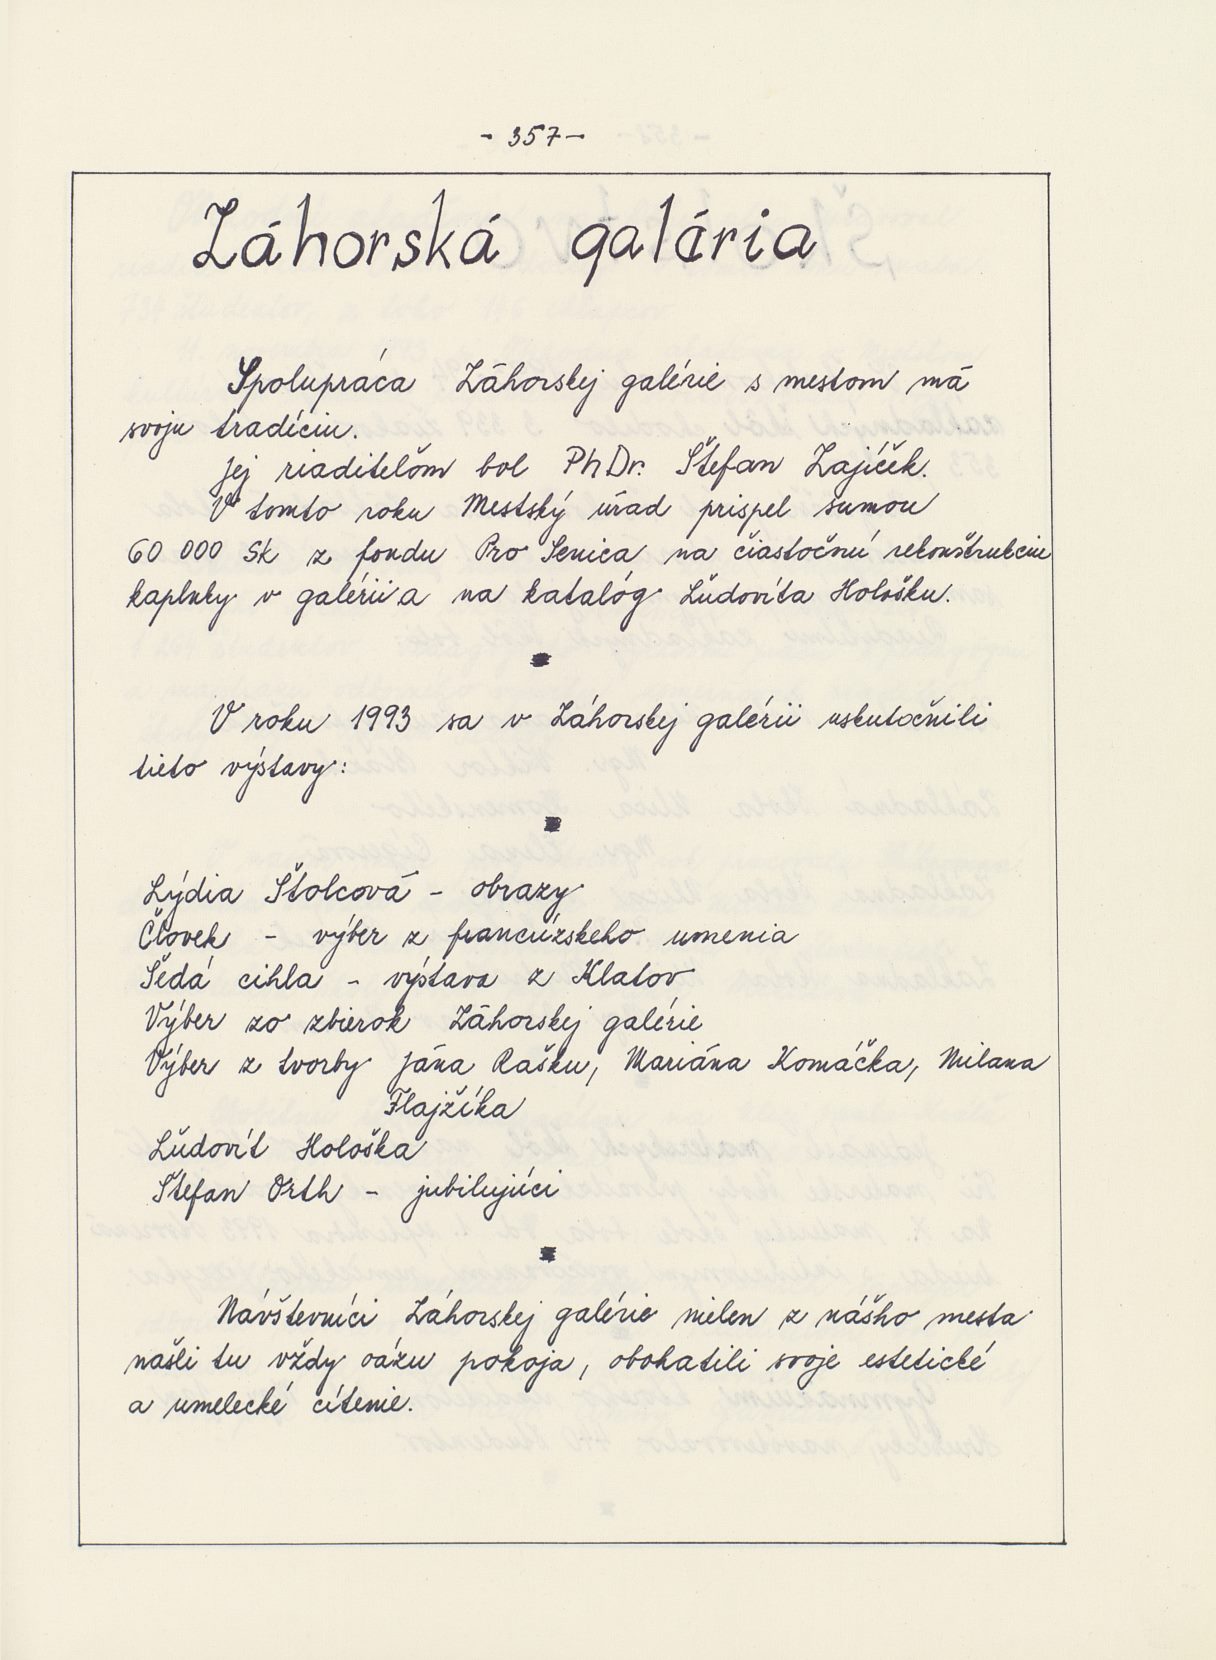 - 357 -
Záhorská galéria
Spolupráca Záhorskej galérie s mestom má
svoju tradíciu.
Jej riaditeľom bol PhDr. Štefan Zajíček.
V tomto roku Mestský úrad prispel sumou
60 000 Sk z fondu Pro Senica na čiastočnú rekonštrukciu
kaplnky v galérii a na katalóg Ľudovíta Hološku.
V roku 1993 sa v Záhorskej galérii uskutočnili
tieto výstavy:
Lýdia Štolcová - obrazy
Človek - výber z francúzskeho umenia
Šedá cihla - výstava z Klatov
Výber zo zbierok Záhorskej galérie
Výber z tvorby Jána Rašku, Mariána Komáčka, Milana
Flajžíka
Ľudovít Hološka
Štefan Orth - jubilujúci
Návštevníci Záhorskej galérie nielen z nášho mesta
našli tu vždy oázu pokoja, obohatili svoje estetické
a umelecké cítenie.